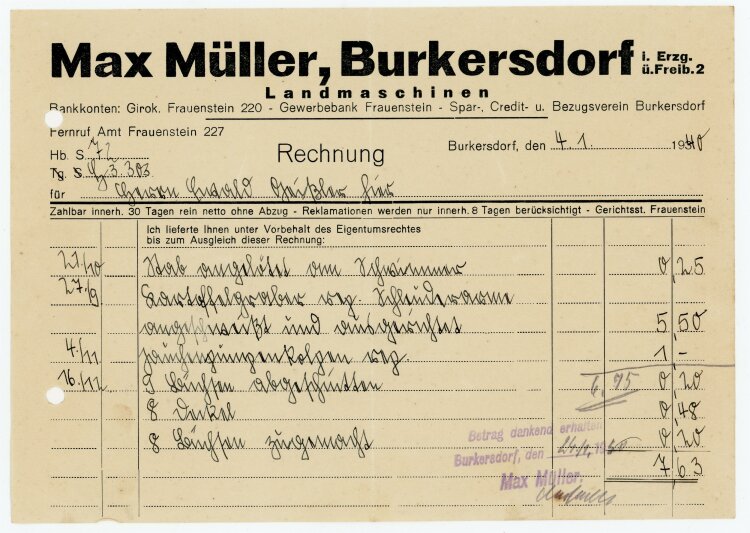 Max Müller, Burkersdorf i. Erzg. ü.Freib. 2
Landmaschinen
Bankkonten: Girok. Frauenstein 220 - Gewerbebank Frauenstein - Spar-, Credit- u. Bezugsverein Burkersdorf
Fernruf Amt Frauenstein 227
Hb. S. 72
Rechnung
Burkersdorf, den 4. 1. 1940
Tg. S. 3.303
für Herrn Ewald Geißler hier
Zahlbar innerh. 30 Tagen rein netto ohne Abzug - Reklamationen werden nur innerh. 8 Tagen berücksichtigt - Gerichtsst. Frauenstein
Ich lieferte Ihnen unter Vorbehalt des Eigentumsrechtes
bis zum Ausgleich dieser Rechnung:
21/10 Stab angelötet am Schwimmer 0,25
27/9 Kartoffelgraber rep. Schleuderarme
angeschweißt und ausgerichtet 5,50
4/11 Jauchenpumpenkolben rep. 1,-
16/12 Büchsen abgeschnitten 6,75 0,20
8 Deckel 0,48
8 Büchsen zugemacht 0,20
7,63
Betrag dankend erhalten
Burkersdorf, den 1940
Max Müller.